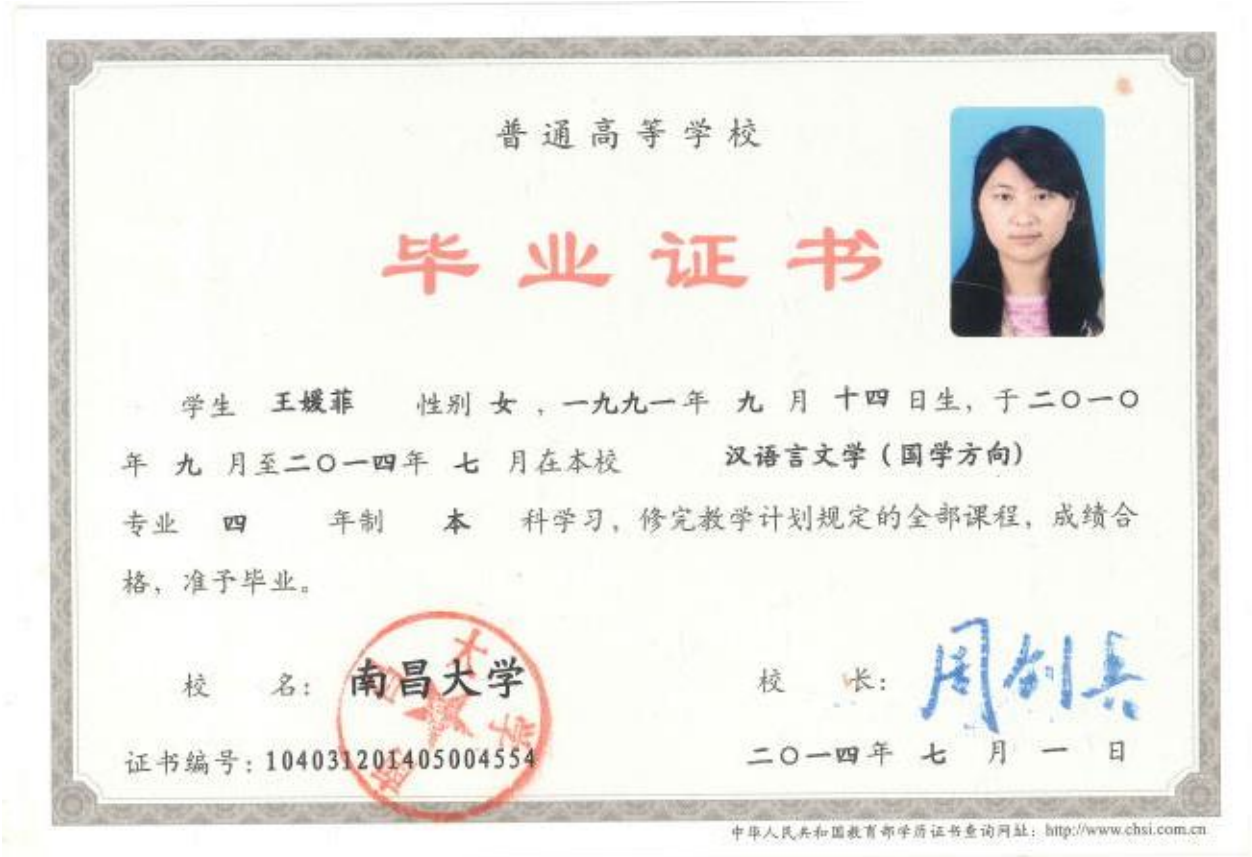 普通高等学校
毕业证书
学生 王媛菲 性别 女，一九九一年 九 月 十四 日生，于二〇一〇
年 九 月至二〇一四年 七 月在本校 汉语言文学（国学方向）
专业 四 年制 本 科学习，修完教学计划规定的全部课程，成绩合
格，准予毕业。
校 名：南昌大学
南昌大学
校 长：周创兵
证书编号：104031201405004554
二〇一四年 七 月 一 日
中华人民共和国教育部学历证书查询网址：http://www.chsi.com.cn